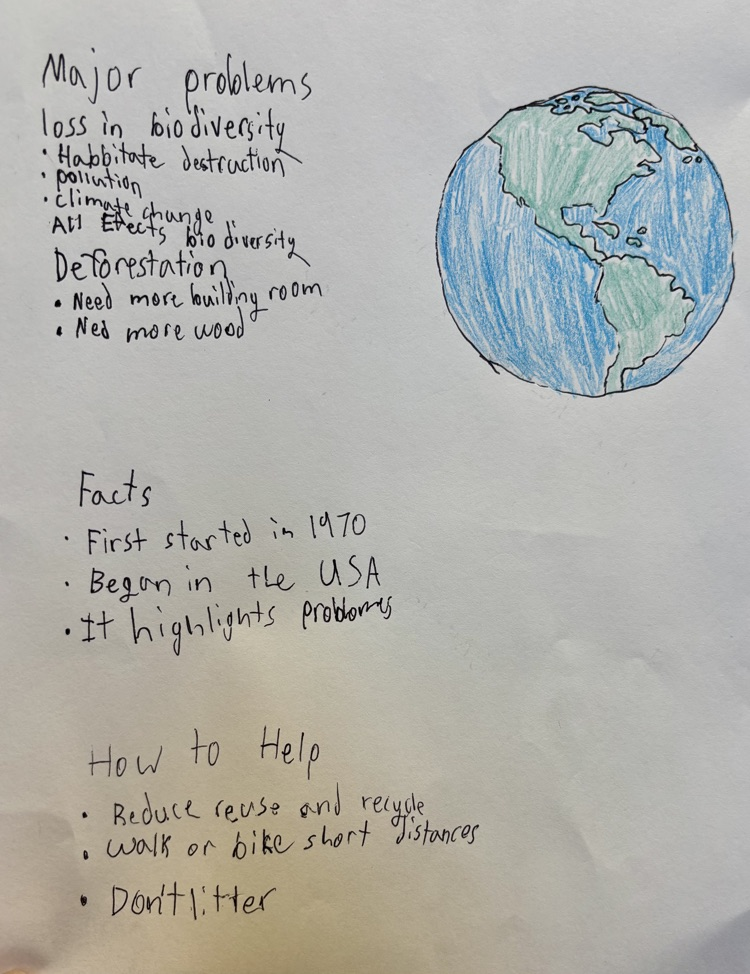 Major problems
loss in biodiversity
• Habbitate destruction
• pollution
• climate change
All Effects biodiversity
Deforestation
• Need more building room
• Ned more wood
Facts
• First started in 1970
• Began in the USA
• It highlights problomes
How to Help
• Reduce reuse and recycle
• Walk or bike short distances
• Don't litter